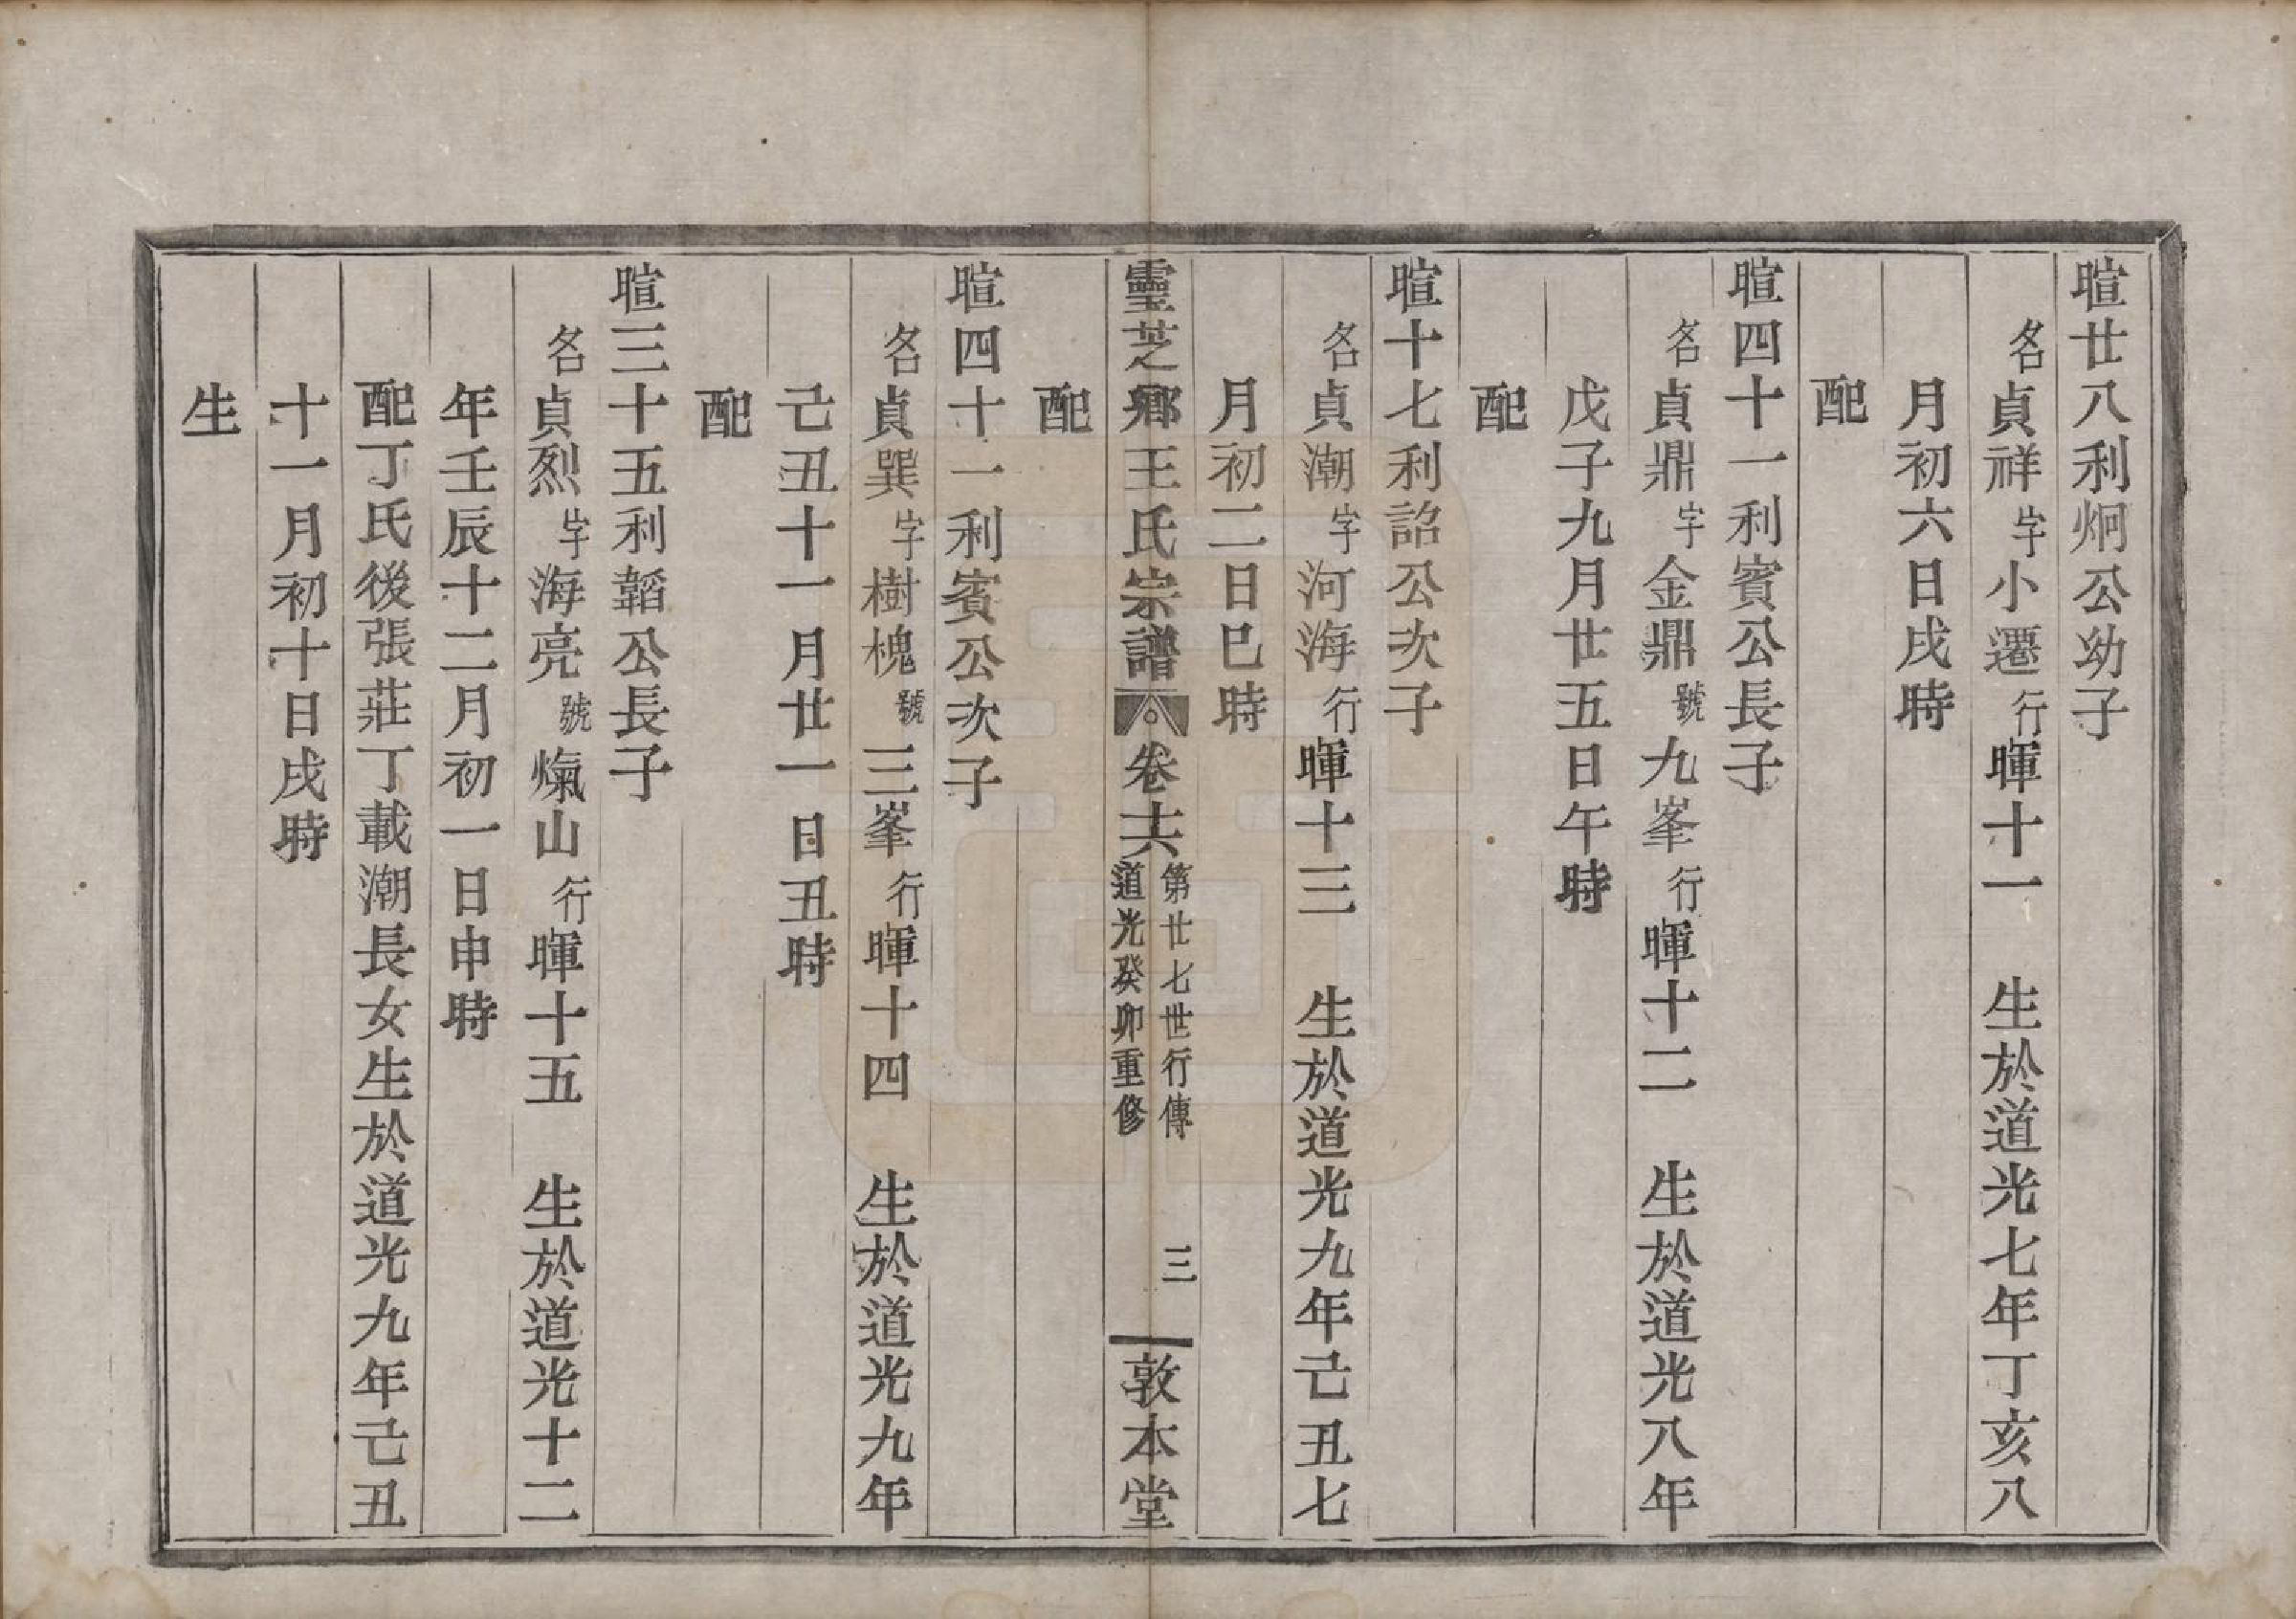 暄廿八利炯公幼子
名貞祥字小遷行暉十一　生於道光七年丁亥八
月初六日戌時
配
暄四十一利賓公長子
名貞鼎字金鼎號九峯行暉十二　生於道光八年
戊子九月廿五日午時
配
暄十七利詔公次子
名貞潮字河海行暉十三　生於道光九年己丑七
月初二日巳時
配
靈芝鄉王氏宗譜　卷十六　第廿七世行傳　道光癸卯重修　三　敦本堂
暄四十一利賓公次子
名貞巽字樹槐號三峯行暉十四　生於道光九年
己丑十一月廿一日丑時
配
暄三十五利韜公長子
名貞烈字海亮號山行暉十五　生於道光十二
年壬辰十二月初一日申時
配丁氏後張莊丁載潮長女生於道光九年己丑
十一月初十日戌時
生